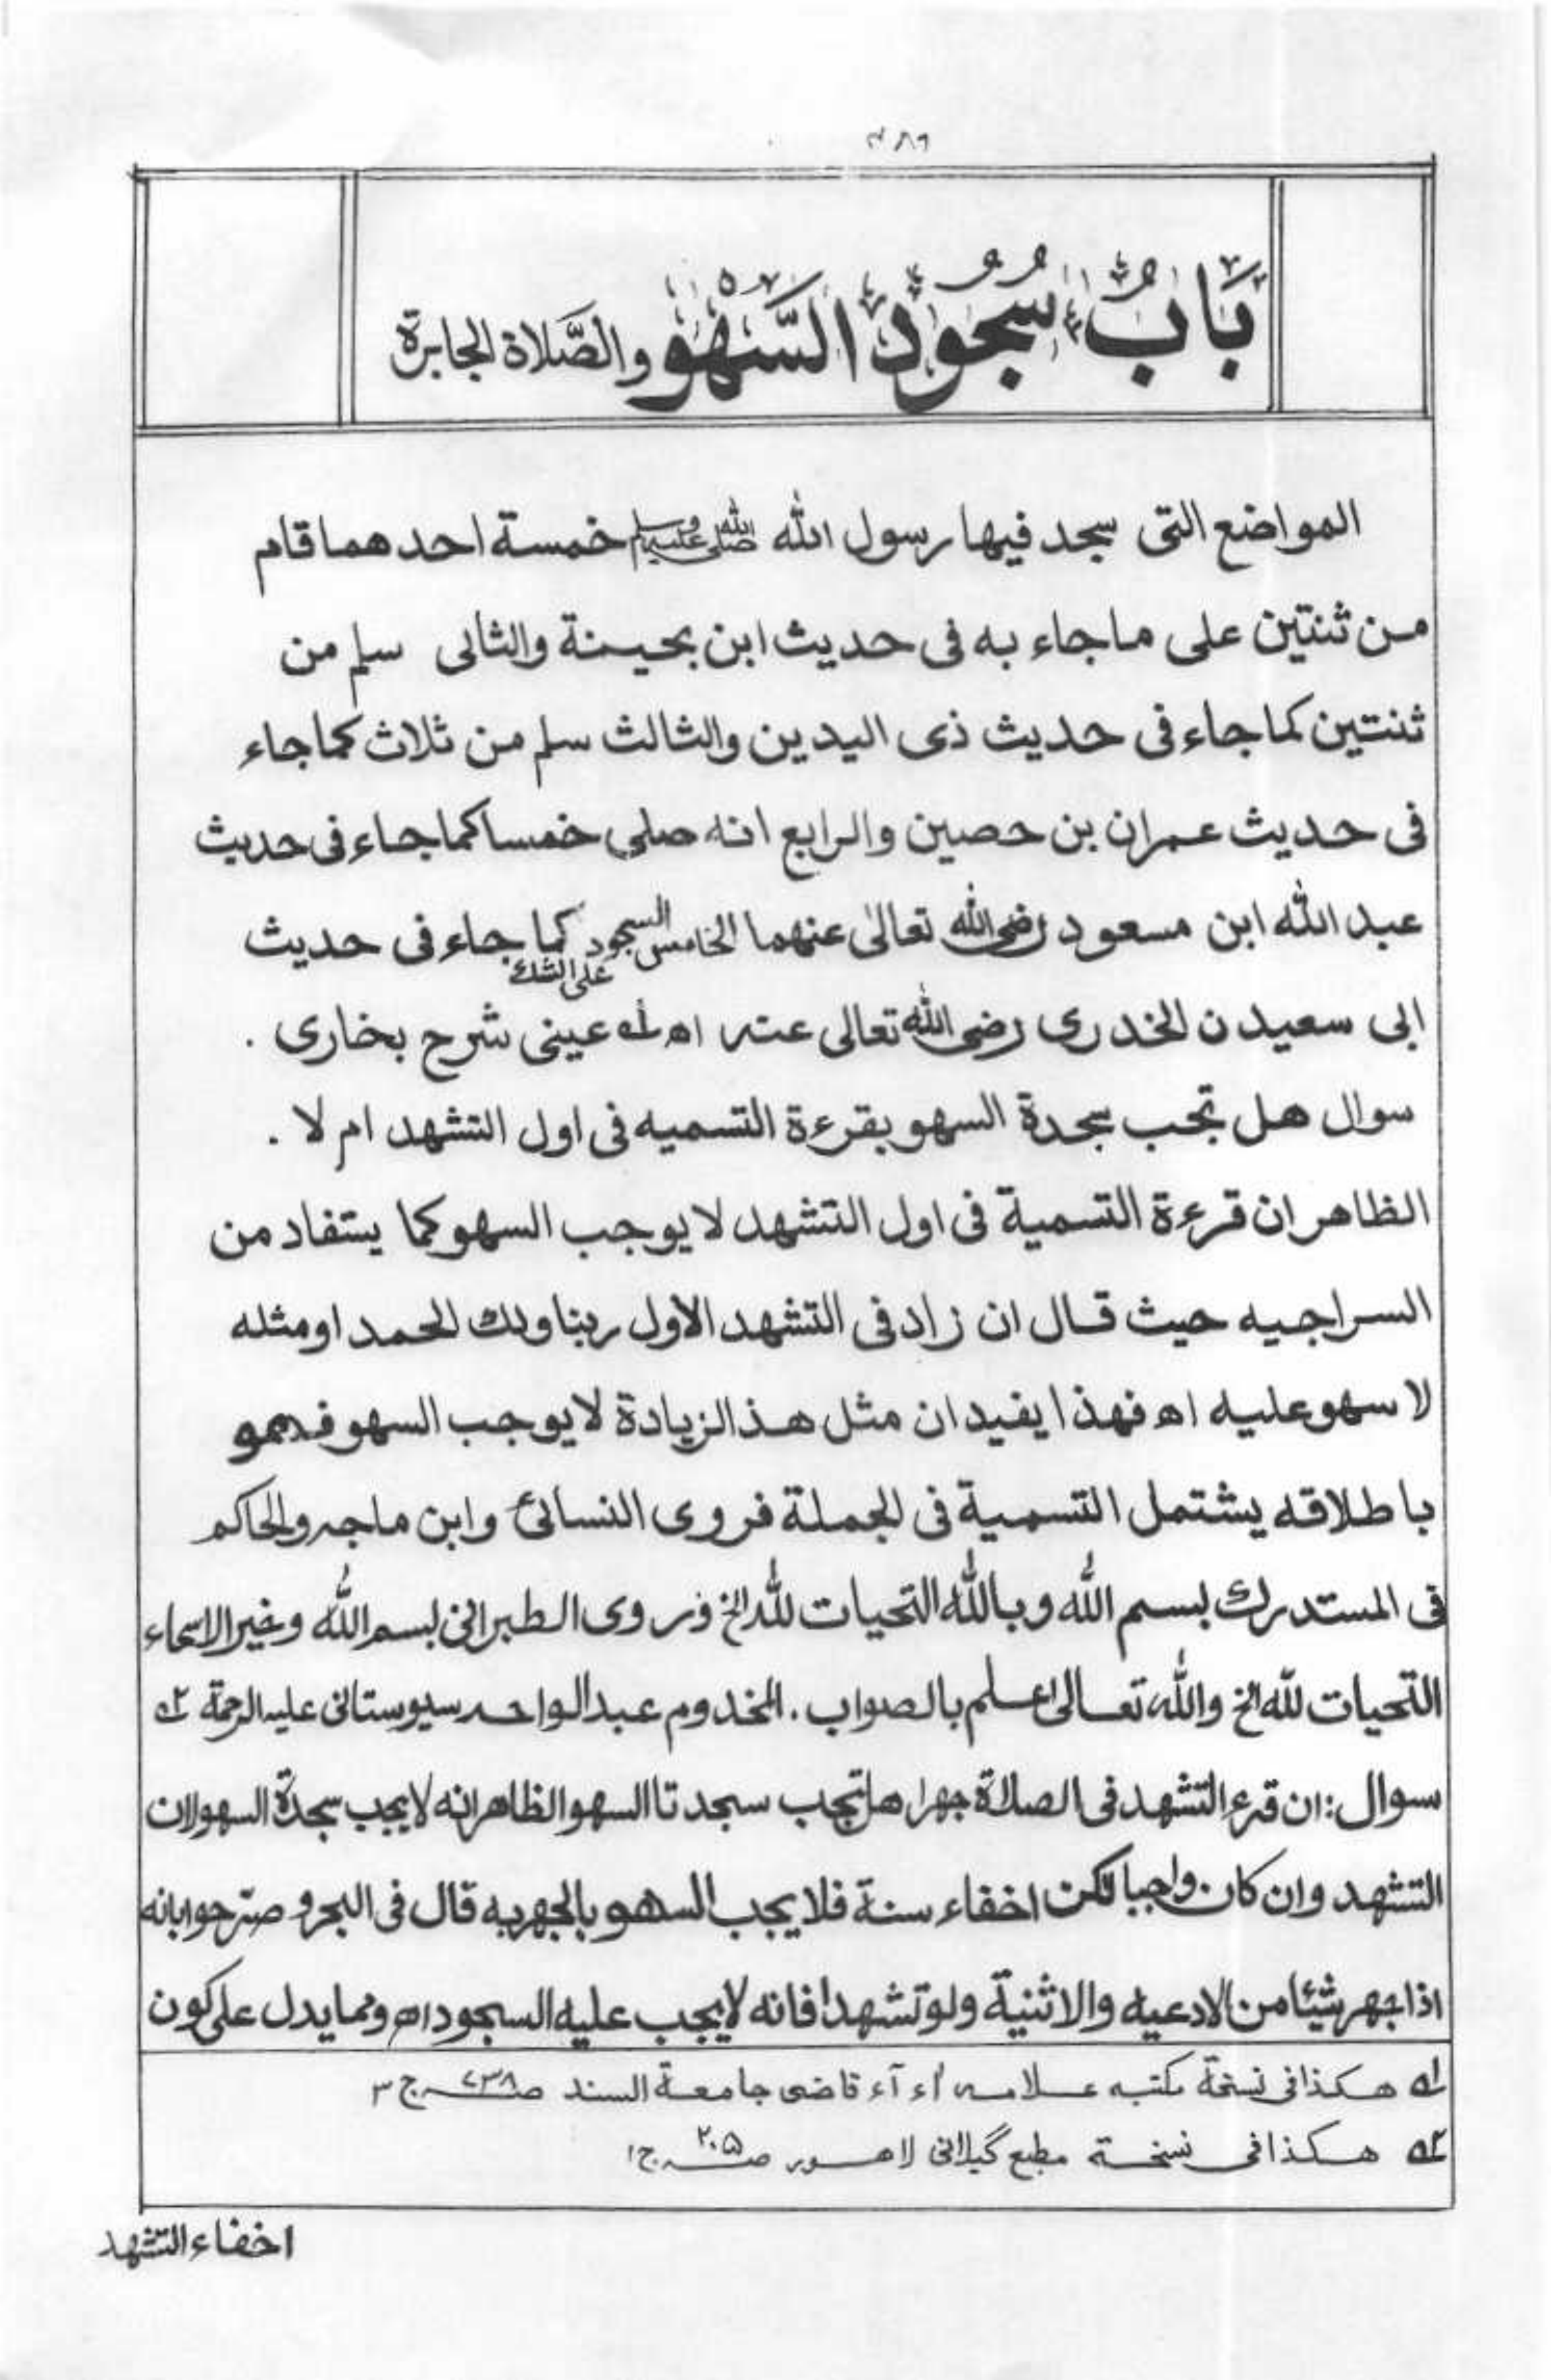 بَابُ سُجُود السَّهْو والصَّلاة الجابرة
المواضع التى سجد فيها رسول الله صلى الله عليه وسلم خمسة احدهما قام
من ثنتين على ما جاء به فى حديث ابن بحينة والثانى سلم من
ثنتين كما جاء فى حديث ذى اليدين والثالث سلم من ثلاث كما جاء
فى حديث عمران بن حصين والرابع انه صلى خمسا كما جاء فى حديث
عبد الله ابن مسعود رضى الله تعالىٰ عنهما الخامس السجود على الشك كما جاء فى حديث
ابى سعيد ن الخدرى رضى الله تعالى عنه اه ١ عينى شرح بخارى .
سوال هل تجب سجدة السهو بقرءة التسميه فى اول التشهد ام لا .
الظاهر ان قرءة التسمية فى اول التشهد لا يوجب السهو كما يستفاد من
السراجيه حيث قال ان زاد فى التشهد الاول ربنا ولك الحمد او مثله
لا سهو عليه اه فهذا يفيد ان مثل هذ الزيادة لا يوجب السهو فهو
باطلاقه يشتمل التسمية فى الجملة فروى النسائى وابن ماجه والحاكم
فى المستدرك بسم الله وبالله التحيات لله الخ وروى الطبرانى بسم الله وخير الاسماء
التحيات لله الخ والله تعالى اعلم بالصواب . المخدوم عبد الواحد سيوستانى عليه الرحمة ٢
سوال : ان قرء التشهد فى الصلاة جهرا هل تجب سجدتا السهو الظاهر انه لا يجب سجدة السهو لان
التشهد وان كان واجبا لكن اخفاء سنة فلا يجب السهو بالجهر به قال فى البحر و صرّحوا بانه
اذا جهر شيئا من الادعيه والاثنية ولو تشهدا فانه لا يجب عليه السجود اه ومما يدل على كون
١ هكذا فى نسخة مكتبه علامه اء آء قاضى جامعة السند صـ٢٣٨ ج ٣
٢ هكذا فى نسخة مطبع گيلانى لاهور صـ٢٠٥ ج١
اخفاء التشهد